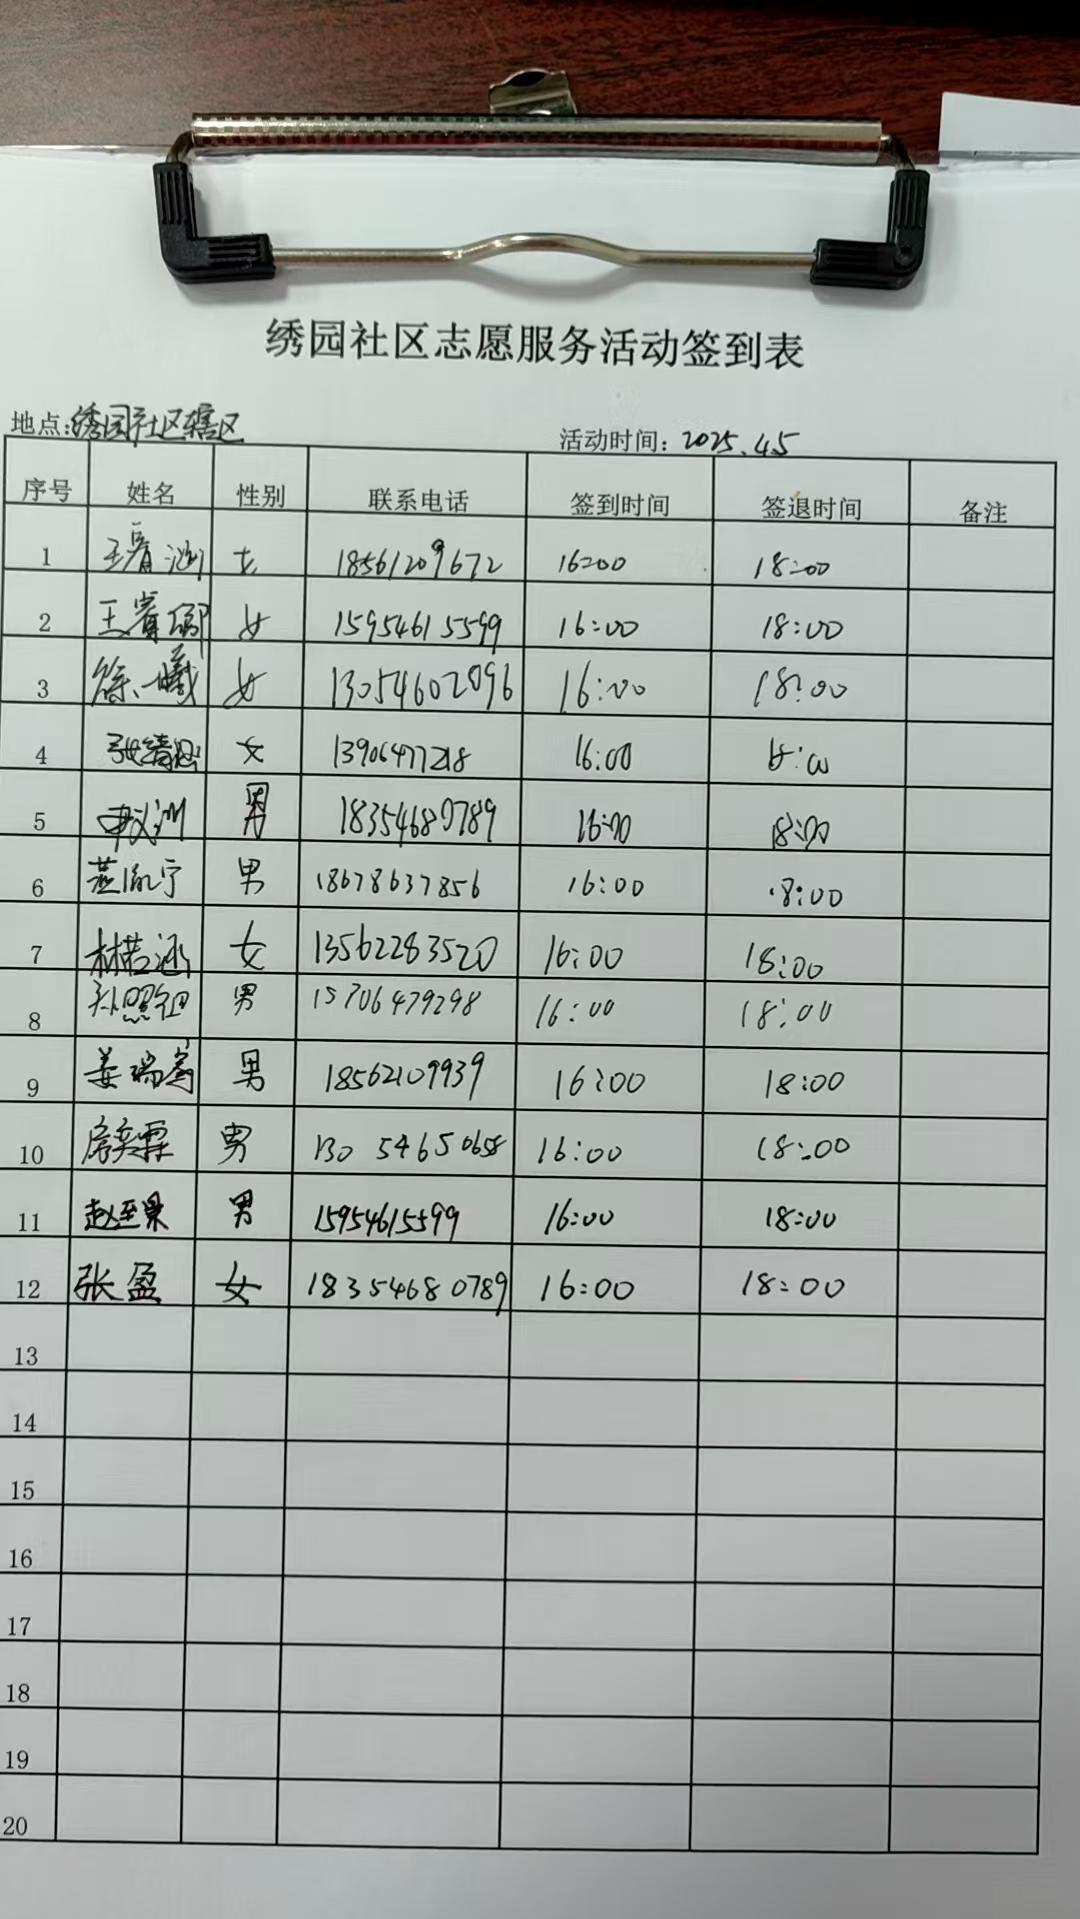 绣园社区志愿服务活动签到表
地点:绣园社区辖区 活动时间: 2025.4.5
序号 姓名 性别 联系电话 签到时间 签退时间 备注
1 王睿涵 女 18561209672 16:00 18:00
2 王睿卿 女 15954615599 16:00 18:00
3 徐一曦 女 13054602096 16:00 18:00
4 女 13906477218 16:00
5 男 18354680789 16:00 18:00
6 男 18678637856 16:00 18:00
7 林若涵 女 13562283520 16:00 18:00
8 男 15706479298 16:00 18:00
9 姜瑞 男 18562109939 16:00 18:00
10 房奕霖 男 130 5465 0658 16:00 18:00
11 赵至 男 15954615599 16:00 18:00
12 张盈 女 18354680789 16:00 18:00
13
14
15
16
17
18
19
20